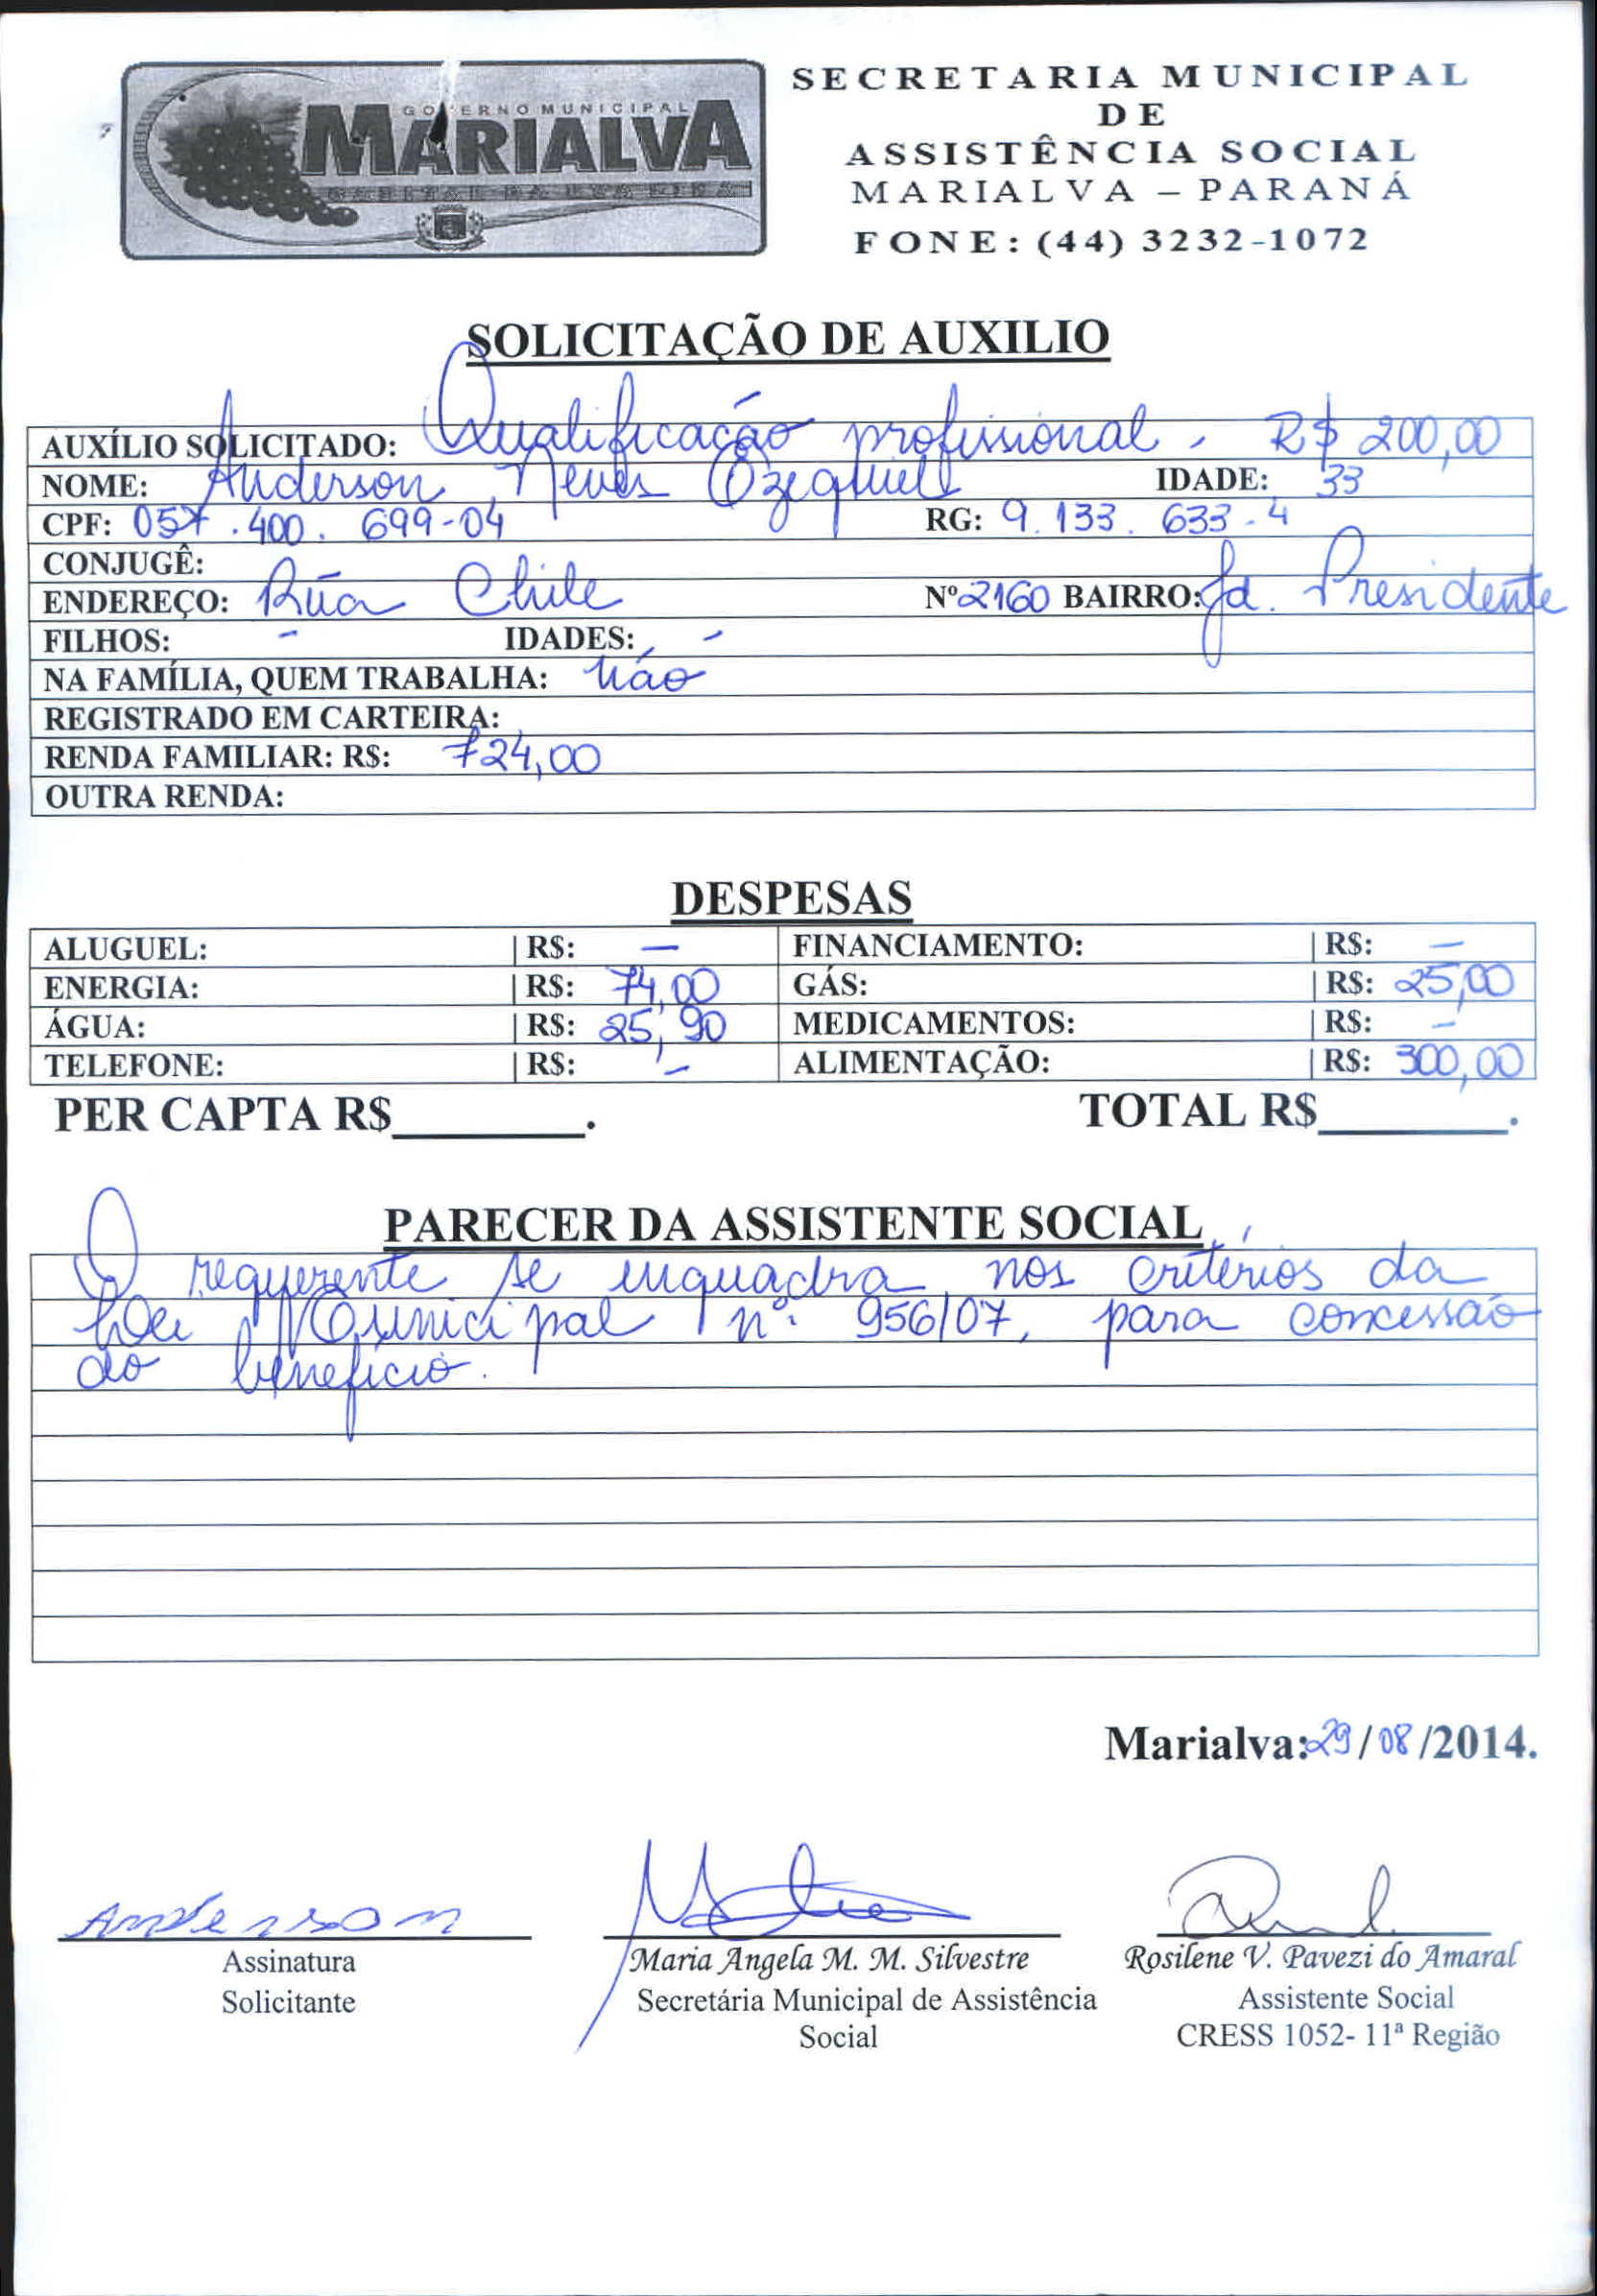 GOVERNO MUNICIPAL
MARIALVA
CAPITAL DA UVA FINA
SECRETARIA MUNICIPAL
DE
ASSISTÊNCIA SOCIAL
MARIALVA – PARANÁ
FONE: (44) 3232-1072
SOLICITAÇÃO DE AUXILIO
AUXÍLIO SOLICITADO: Qualificação profissional - R$ 200,00
NOME: Anderson Neves Ozequiel IDADE: 33
CPF: 057.400.699-04 RG: 9.133.633-4
CONJUGÊ:
ENDEREÇO: Rua Chile Nº 2160 BAIRRO: Jd. Presidente
FILHOS: - IDADES: -
NA FAMÍLIA, QUEM TRABALHA: não
REGISTRADO EM CARTEIRA:
RENDA FAMILIAR: R$: 724,00
OUTRA RENDA:
DESPESAS
ALUGUEL: | R$: — FINANCIAMENTO: | R$: —
ENERGIA: | R$: 74,00 GÁS: | R$: 25,00
ÁGUA: | R$: 25,90 MEDICAMENTOS: | R$: -
TELEFONE: | R$: - ALIMENTAÇÃO: | R$: 300,00
PER CAPTA R$________. TOTAL R$________.
PARECER DA ASSISTENTE SOCIAL
O requerente se enquadra nos critérios da
Lei Municipal nº 956/07, para concessão
do benefício.
Marialva: 29/08/2014.
Anderson
Assinatura
Solicitante
Maria Angela M. M. Silvestre
Secretária Municipal de Assistência
Social
Rosilene V. Pavezi do Amaral
Assistente Social
CRESS 1052- 11ª Região